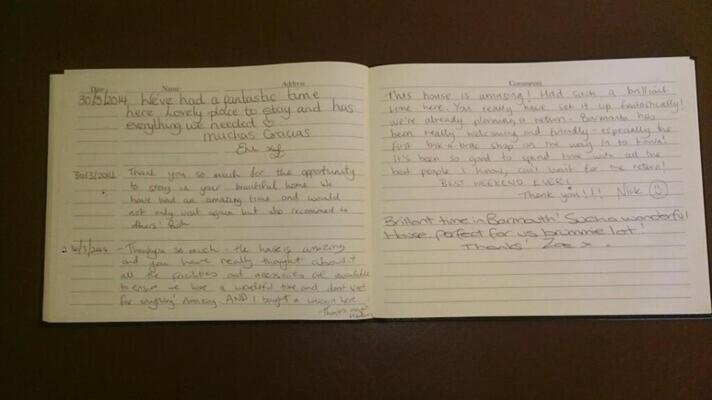 Date Name Address
30/3/2014 We've had a fantastic time
here. Lovely place to stay and has
everything we needed
Muchas Gracias
30/3/2014 Thank you so much for the opportunity
to stay in your beautiful home. We
have had an amazing time and would
not only visit again but also recommend to
others!
30/3/2014 - Thankyou so much - the house is amazing
and you have really thought about
all the facilities and are available
to ensure we have a wonderful time and dont want
for anything! Amazing. AND I bought a here
Comments
This house is amazing! Had such a brilliant
time here. You really have set it up fantastically!
We're already planning a return. Barmouth has
been really welcoming and friendly - especially the
first bric a brac shop on the way in to town!
It's been so good to spend time with all the
best people I know, can't wait for the return!
BEST WEEKEND EVER!
Thank you!!! Nick
Brilliant time in Barmouth! Such a wonderful
House, perfect for us brummie lot!
Thanks! Zoe x.